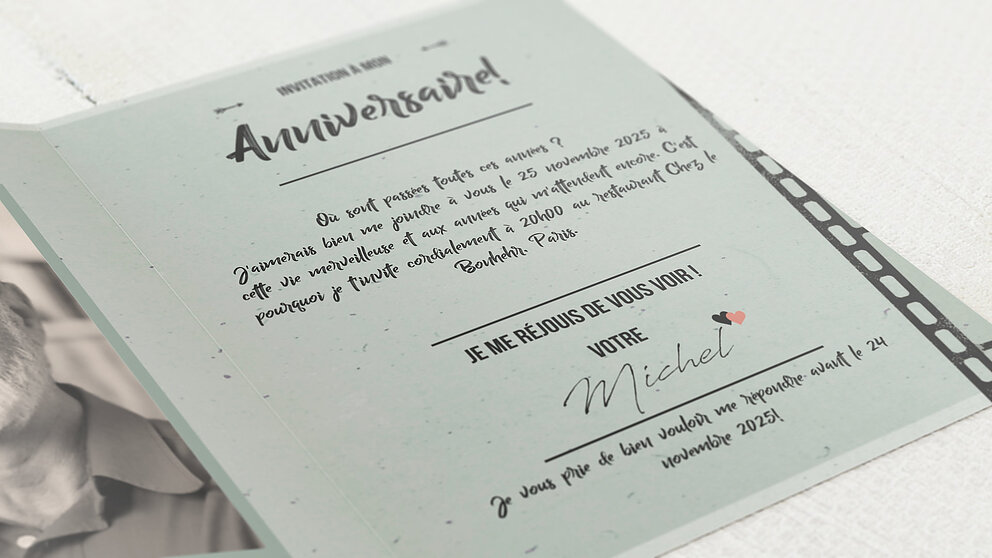 INVITATION À MON
Anniversaire!
Où sont passées toutes ces années ?
J'aimerais bien me joindre à vous le 25 novembre 2025 à
cette vie merveilleuse et aux années qui m'attendent encore. C'est
pourquoi je t'invite cordialement à 20h00 au restaurant Chez le
Bonhehr. Paris.
JE ME RÉJOUIS DE VOUS VOIR !
VOTRE
Michel
Je vous prie de bien vouloir me répondre avant le 24
novembre 2025!